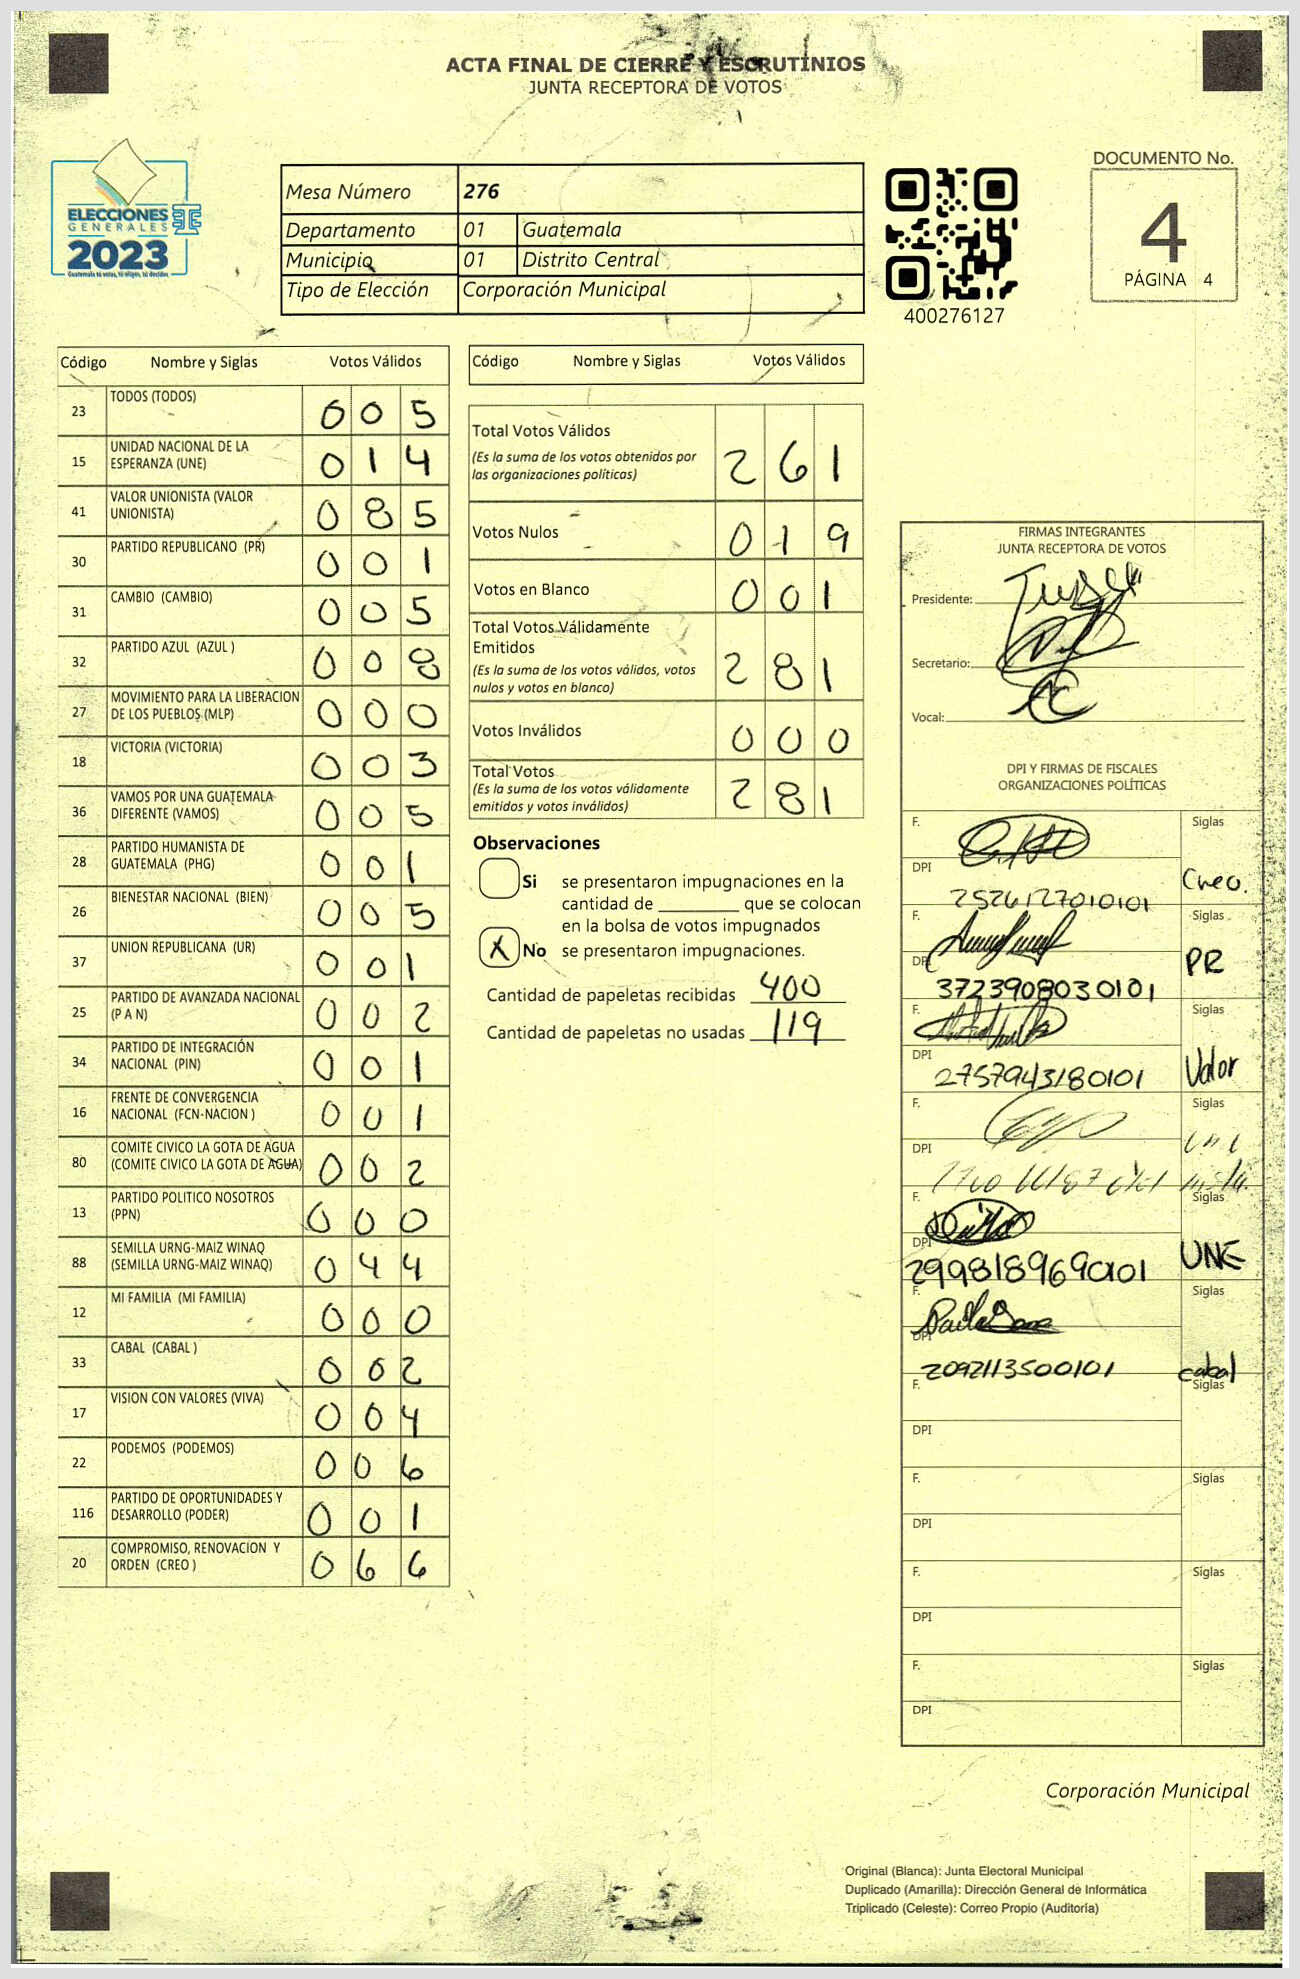 ACTA FINAL DE CIERRE Y ESCRUTINIOS
JUNTA RECEPTORA DE VOTOS
ELECCIONES
GENERALES
2023
Guatemala tú votas, tú eliges, tú decides
Mesa Número 276
Departamento 01 Guatemala
Municipio 01 Distrito Central
Tipo de Elección Corporación Municipal
400276127
DOCUMENTO No.
4
PÁGINA 4
Código Nombre y Siglas Votos Válidos
23 TODOS (TODOS) 0 0 5
15 UNIDAD NACIONAL DE LA ESPERANZA (UNE) 0 1 4
41 VALOR UNIONISTA (VALOR UNIONISTA) 0 8 5
30 PARTIDO REPUBLICANO (PR) 0 0 1
31 CAMBIO (CAMBIO) 0 0 5
32 PARTIDO AZUL (AZUL ) 0 0 8
27 MOVIMIENTO PARA LA LIBERACION DE LOS PUEBLOS (MLP) 0 0 0
18 VICTORIA (VICTORIA) 0 0 3
36 VAMOS POR UNA GUATEMALA DIFERENTE (VAMOS) 0 0 5
28 PARTIDO HUMANISTA DE GUATEMALA (PHG) 0 0 1
26 BIENESTAR NACIONAL (BIEN) 0 0 5
37 UNION REPUBLICANA (UR) 0 0 1
25 PARTIDO DE AVANZADA NACIONAL (P A N) 0 0 2
34 PARTIDO DE INTEGRACIÓN NACIONAL (PIN) 0 0 1
16 FRENTE DE CONVERGENCIA NACIONAL (FCN-NACION ) 0 0 1
80 COMITE CIVICO LA GOTA DE AGUA (COMITE CIVICO LA GOTA DE AGUA) 0 0 2
13 PARTIDO POLITICO NOSOTROS (PPN) 0 0 0
88 SEMILLA URNG-MAIZ WINAQ (SEMILLA URNG-MAIZ WINAQ) 0 4 4
12 MI FAMILIA (MI FAMILIA) 0 0 0
33 CABAL (CABAL ) 0 0 2
17 VISION CON VALORES (VIVA) 0 0 4
22 PODEMOS (PODEMOS) 0 0 6
116 PARTIDO DE OPORTUNIDADES Y DESARROLLO (PODER) 0 0 1
20 COMPROMISO, RENOVACION Y ORDEN (CREO ) 0 6 6
Código Nombre y Siglas Votos Válidos
Total Votos Válidos 2 6 1
(Es la suma de los votos obtenidos por
las organizaciones políticas)
Votos Nulos 0 1 9
Votos en Blanco 0 0 1
Total Votos Válidamente
Emitidos 2 8 1
(Es la suma de los votos válidos, votos
nulos y votos en blanco)
Votos Inválidos 0 0 0
Total Votos 2 8 1
(Es la suma de los votos válidamente
emitidos y votos inválidos)
Observaciones
Si se presentaron impugnaciones en la
cantidad de ________ que se colocan
en la bolsa de votos impugnados
X No se presentaron impugnaciones.
Cantidad de papeletas recibidas 400
Cantidad de papeletas no usadas 119
FIRMAS INTEGRANTES
JUNTA RECEPTORA DE VOTOS
Presidente:
Secretario:
Vocal:
DPI Y FIRMAS DE FISCALES
ORGANIZACIONES POLÍTICAS
F. Siglas
DPI 2526127010101 Creo.
F. Siglas
DPI 3723908030101 PR
F. Siglas
DPI 2757943180101 Valor
F. Siglas
DPI
F. Siglas
DPI 2998189690101 UNE
F. Siglas
DPI 2092113500101 cabal
F. Siglas
DPI
F. Siglas
DPI
F. Siglas
DPI
F. Siglas
DPI
Corporación Municipal
Original (Blanca): Junta Electoral Municipal
Duplicado (Amarilla): Dirección General de Informática
Triplicado (Celeste): Correo Propio (Auditoría)